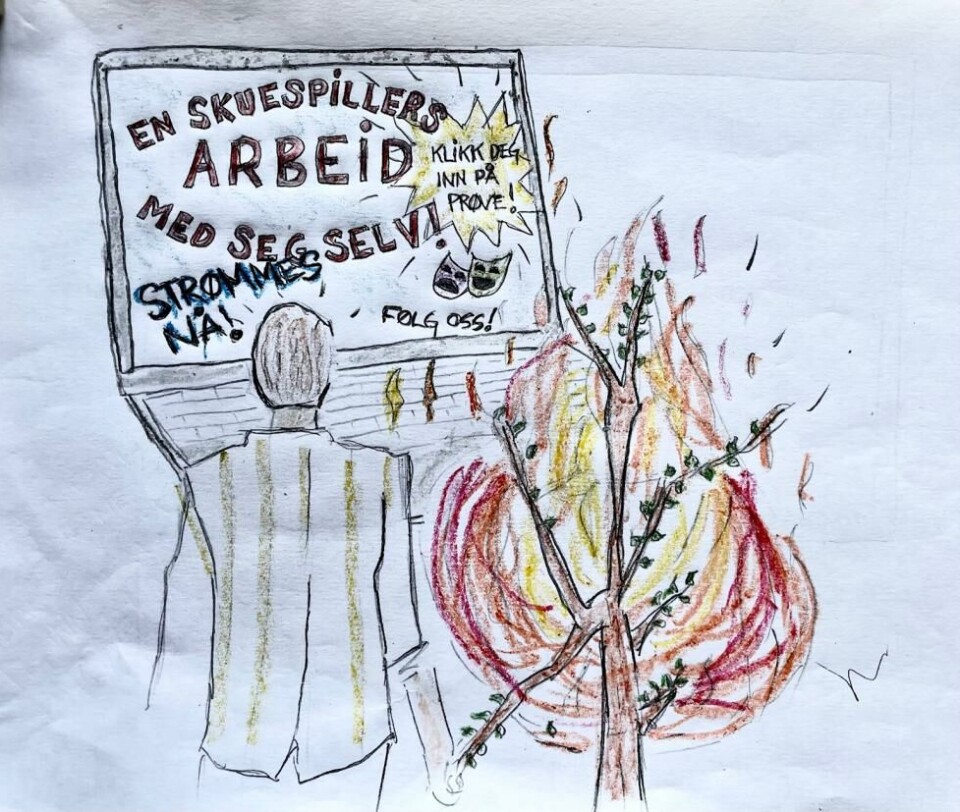 EN SKUESPILLERS
ARBEID
MED SEG SELV!
KLIKK DEG
INN PÅ
PRØVE!
STRØMMES
NÅ!
FØLG OSS!